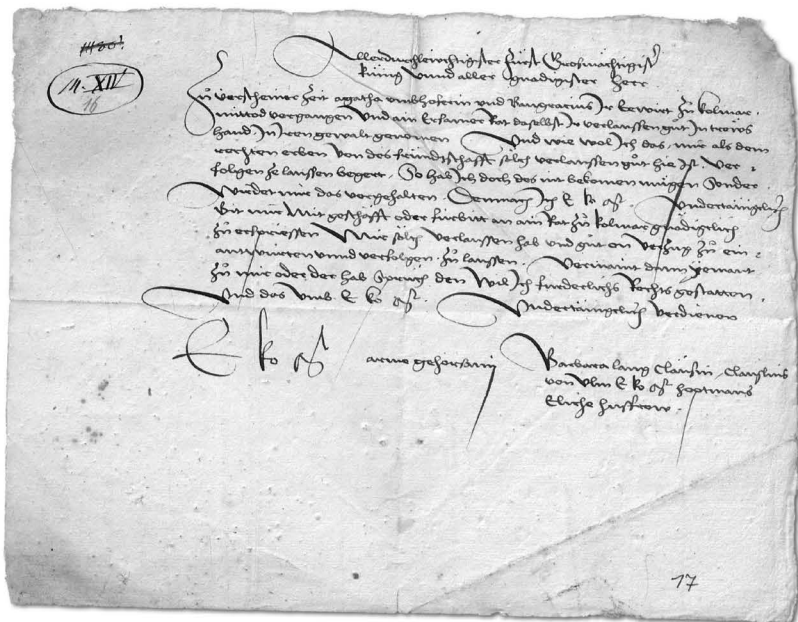 M. XIV
16
Allerdurchleuchtigster Fürst Großmächtigister
Küng unnd aller gnädigister Herr
Zů verschiner Zeit agatha und Ir Eewirt zů kolmar
mittod vergangen Und ain Ersamer Rat daselbst Ir verlaussen gůt In trews
hand In Iren gewalt genomen Und wie wol Ich das, mir als dem
rechten erben von der freundtschafft sölich verlaussen gůt hie Ist ver
folgen ze laussen begert. So hab Ich doch des nit bekomen mügen Sonder
wirdet mir das vorgehalten. Demnach Ich E ko Mt Undertäniglich
Bit mir Mit geschäfft oder fürbitt an ain Rat zů kolmar gnädiglich
zů erschiessen Mir sölich verlaussen hab und gůt on verzug zů ein
antwurten unnd verfolgen zů laussen. Vermaint dann yemant
zů mir oder der hab Spruch den wil Ich fürderlichs Rechts gestatten.
Und das umb E ko Mt Undertäniglich verdienen
E ko Mt
arme gehorsam
Barbara lang
von Ulm E ko Mt hoptmans
Eliche husfrow.
17